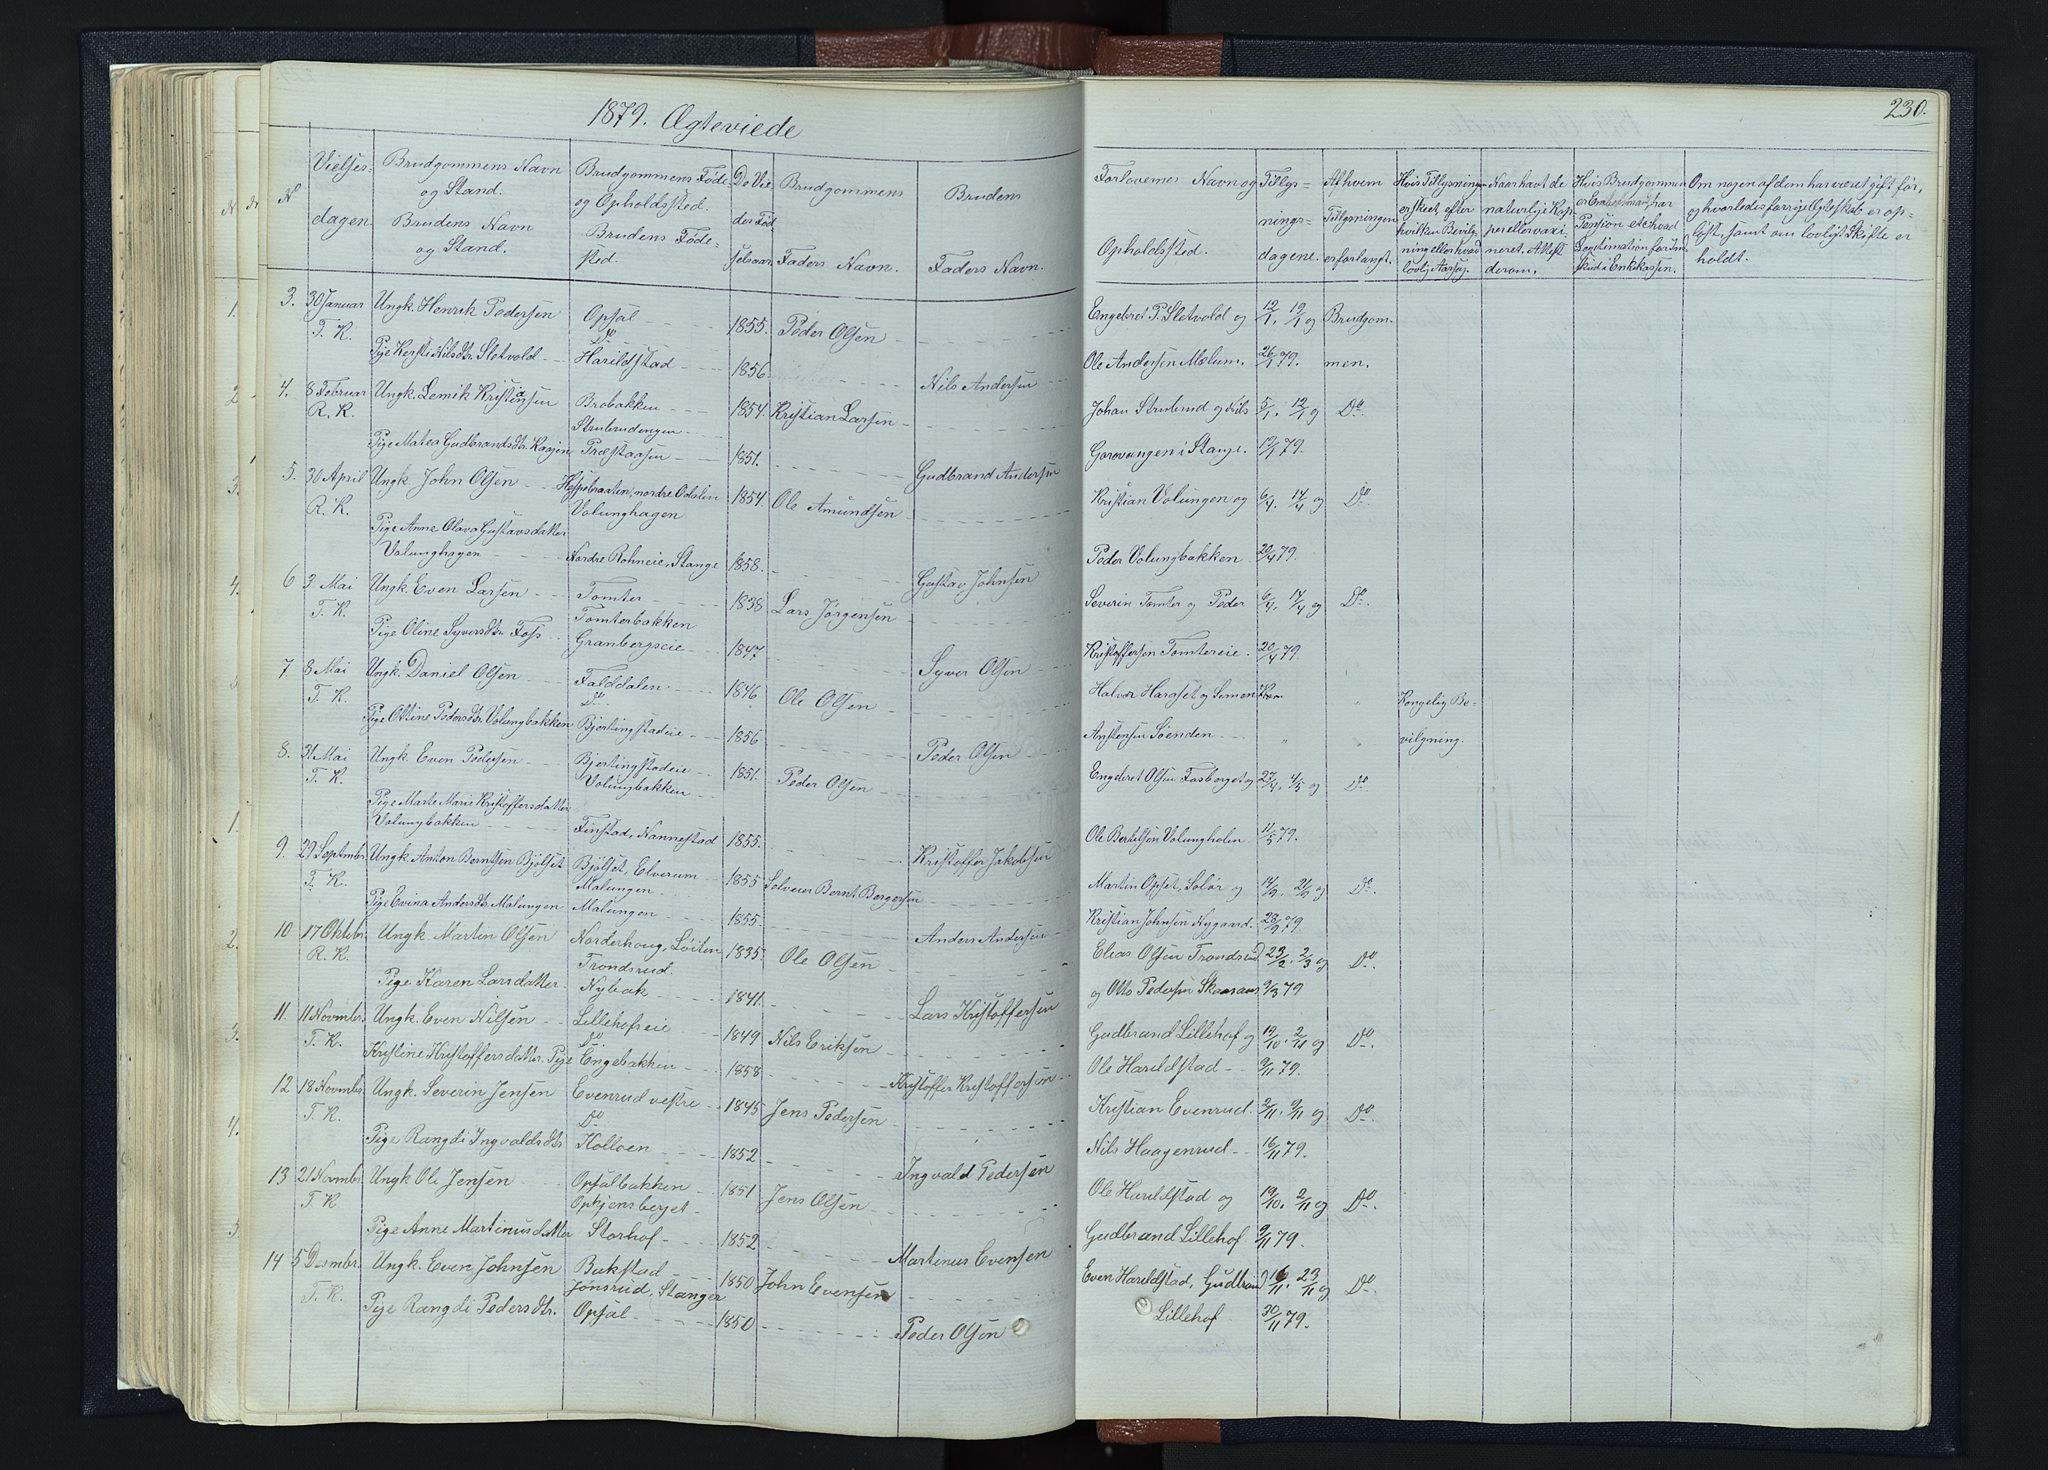 1879. Ægteviede
230.
No
Vielses-
dagen.
Brudgommens Navn
og Stand.
Brudens Navn
og Stand.
Brudgommens Føde
og Opholdssted.
Brudens Føde-
sted.
Do Vie
des Fød
selsaar.
Brudgommens
Faders Navn.
Brudens
Faders Navn.
Forlovernes Navn og
Opholdssted.
Tillys-
nings-
dagene.
Af hvem
Tillysningen
er forlangt.
Hvis Tillysningen
er skeet, efter
hvilken Bevilg-
ning eller hvad
lovlig Aarsag.
Naar havt de
naturlige Kop-
per eller vaxi
neret. Attest
derom.
Hvis Brudgommen
er Embedsmand, har
Pension etc hvad
Legitimation for Ind
skud i Enkekassen.
Om nogen af dem har været gift før,
og hvorledes forrige Ægteskab er op-
løst, samt om lovligt Skifte er
holdt.
3. 30 Januar Ungk. Henrik Pedersen Opsal 1855. Peder Olsen Engebret P. Sletvold og 12/1, 19/1 og Brudgom-
T. K. Do
Pige Kersti Nilsdtr. Sletvold Harildstad 1856 Nils Andersen Ole Andersen Mælum. 26/1 79. men.
4. 8 Februar Ungk. Lemik Kristiansen Brobakken 1854. Kristian Larsen Johan Strubrud og Nils 5/1, 12/1 og Do
R. K. Strubrudengen
Pige Matea Gudbrandsdtr. Kaasen Træstaasen 1851. Gudbrand Andersen Gorovangen i Stange. 19/1 79.
5. 30 April Ungk. John Olsen nordre Odalen 1854. Ole Amundsen Kristian Volungen og 6/4, 14/4 og Do
R. K. Volunghagen
Pige Anne Olava Gustavsdatter
Volunghagen Nordre Rohneie, Stange 1858. Gustav Johnsen Peder Volungbakken 20/4 79.
6 3 Mai Ungk. Even Larsen Tomter 1838 Lars Jørgensen Severin Tomter og Peder 6/4, 14/4 og Do.
T. K. Tomterbakken
Pige Oline Syversdtr. Foss Granbergseie 1847. Syver Olsen Kristoffersen Tomtereie. 20/4 79.
7 8 Mai Ungk. Daniel Olsen Falddalen 1846 Ole Olsen Halvor Haraset og Simen " Kongelig Be-
T. K. Do
Pige Ottine Pedersdtr. Volungbakken Bjertingstadeie 1856 Peder Olsen Anstensen Søenden " " vilgning.
8. 21 Mai Ungk. Even Pedersen Bjertingstadeie 1851. Peder Olsen Engebret Olsen Fosberget og 27/4, 4/5 og Do
T. K. Volungbakken
Pige Marte Marie Kristoffersdatter
Volungbakken Finstad, Nannestad 1855. Kristoffer Jakobsen Ole Bertelsen Volungholen 11/5 79.
9. 29 Septembr. Ungk. Anton Berntsen Bjølset Bjølset, Elverum 1855 Selveier Bernt Borgersen Martin Opset, Solør og 14/9, 21/9 og Do.
T. K. Malungen
Pige Evina Andersdtr. Malungen Malungen 1855. Anders Andersen Kristian Johnsen Nygaard. 28/9 79.
10 17 Oktobr. Ungk. Martin Olsen Norderhoug, Løiten 1835 Ole Olsen Elias Olsen Trondsrud 23/2, 2/3 og Do.
R. K. Trondsrud.
Pige Karen Larsdatter Nybak 1841. Lars Kristoffersen og Otto Pedersen Skaaraas 9/3 79
11 11 Novembr. Ungk. Even Nilsen Lillehofseie 1849 Nils Eriksen Gudbrand Lillehof og 19/10, 2/11 og Do
T. K. Do
Kristine Kristoffersdatter. Pige Engebakken 1858 Kristoffer Kristoffersen Ole Harildstad 9/11 79.
12 18 Novembr Ungk. Severin Jensen Evenrud vestre 1845 Jens Pedersen Kristian Evenrud. 2/11, 9/11 og Do
T. K. Do
Pige Rangdi Ingvaldsdtr. Kolloen 1852 Ingvald Pedersen Nils Haagenrud 16/11 79.
13 21 Novembr. Ungk Ole Jensen Opsalbakken 1851 Jens Olsen Ole Harildstad og 19/10, 2/11 og Do.
T. K Opkjensberget
Pige Anne Martinusdatter Storhof 1852 Martinus Evensen Gudbrand Lillehof 9/11 79.
14 5 Decembr. Ungk. Even Johnsen Bukstad 1850 John Evensen Even Harildstad, Gudbrand 16/11, 23/11 og Do
T. K. Jønsrud, Stange
Pige Rangdi Pedersdtr. Opsal 1850 Peder Olsen Lillehof 30/11 79.